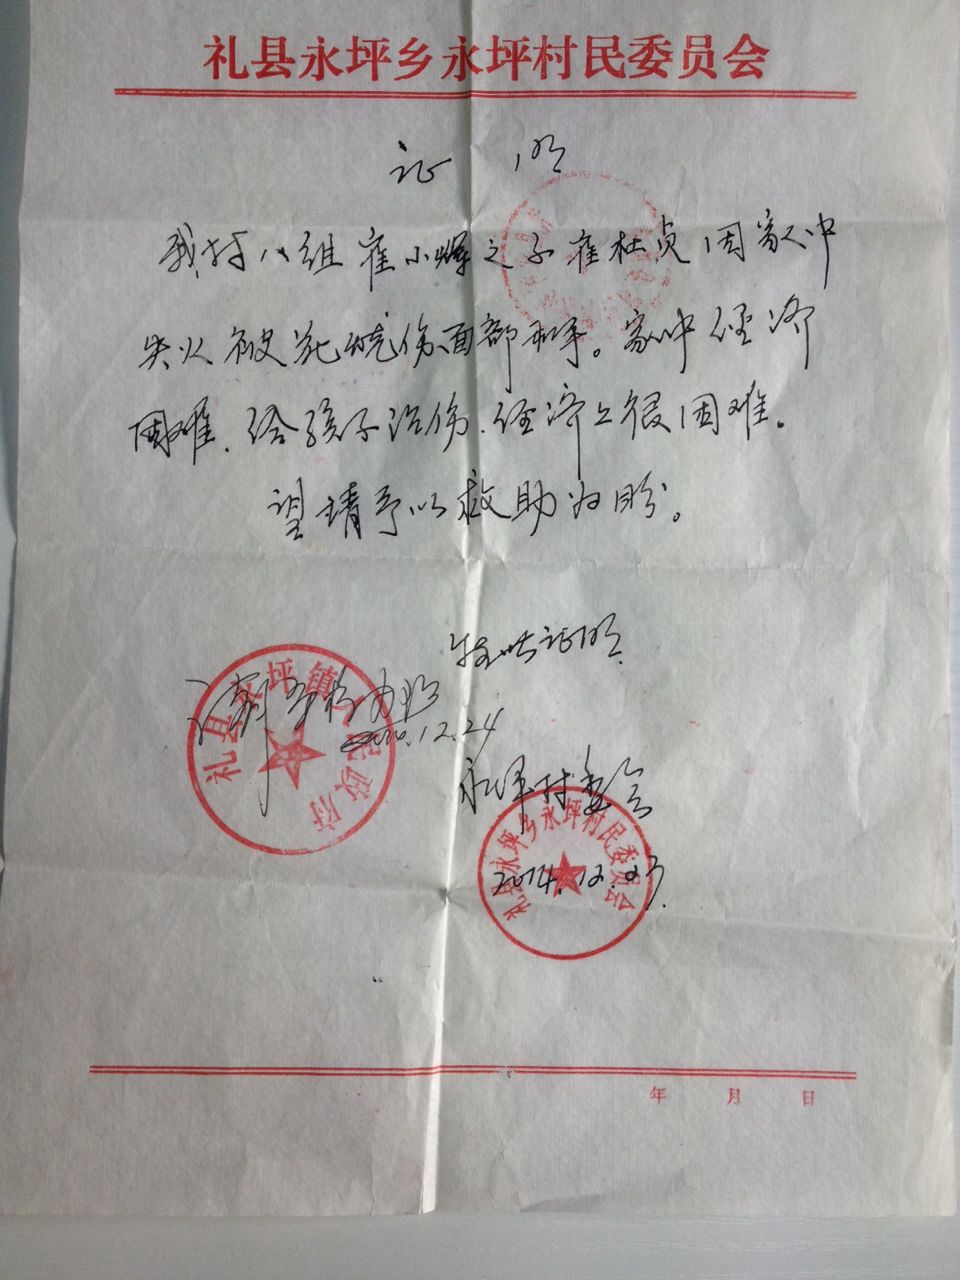 礼县永坪乡永坪村民委员会
证 明
我村八组崔小辉之子崔杜贞因家中
失火被 烧伤面部和手。家中经济
困难、给孩子治伤、经济上很困难。
望请予以救助为盼。
特此证明
12.24
礼县永坪镇人民政府
永坪村委会
礼县永坪乡永坪村民委员会
2014.12.23
年 月 日